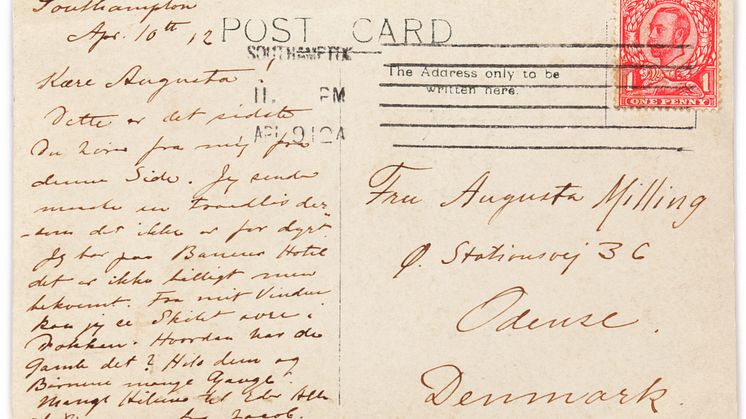 Southampton
Apr. 10th 12
POST CARD
SOUTHAMPTON
11. PM
AP 9 12 A
The Address only to be
written here.
1 1
ONE PENNY
Kære Augusta!
Dette er det sidste
Du hører fra mig fra
denne Side. Jeg sender
maaske en Traadløs der-
som det ikke er for dyrt
Jeg bor paa Hotel
det er ikke billigt men
bekvemt. Fra mit Vindue
kan jeg se Skibet være i
Dokken. Hvordan har de
Gamle det? Hils dem og
Børnene mange Gange
Mange Hilsner til Eder Alle
Jacob.
Fru Augusta Milling
Ø. Stationsvej 36
Odense.
Denmark.